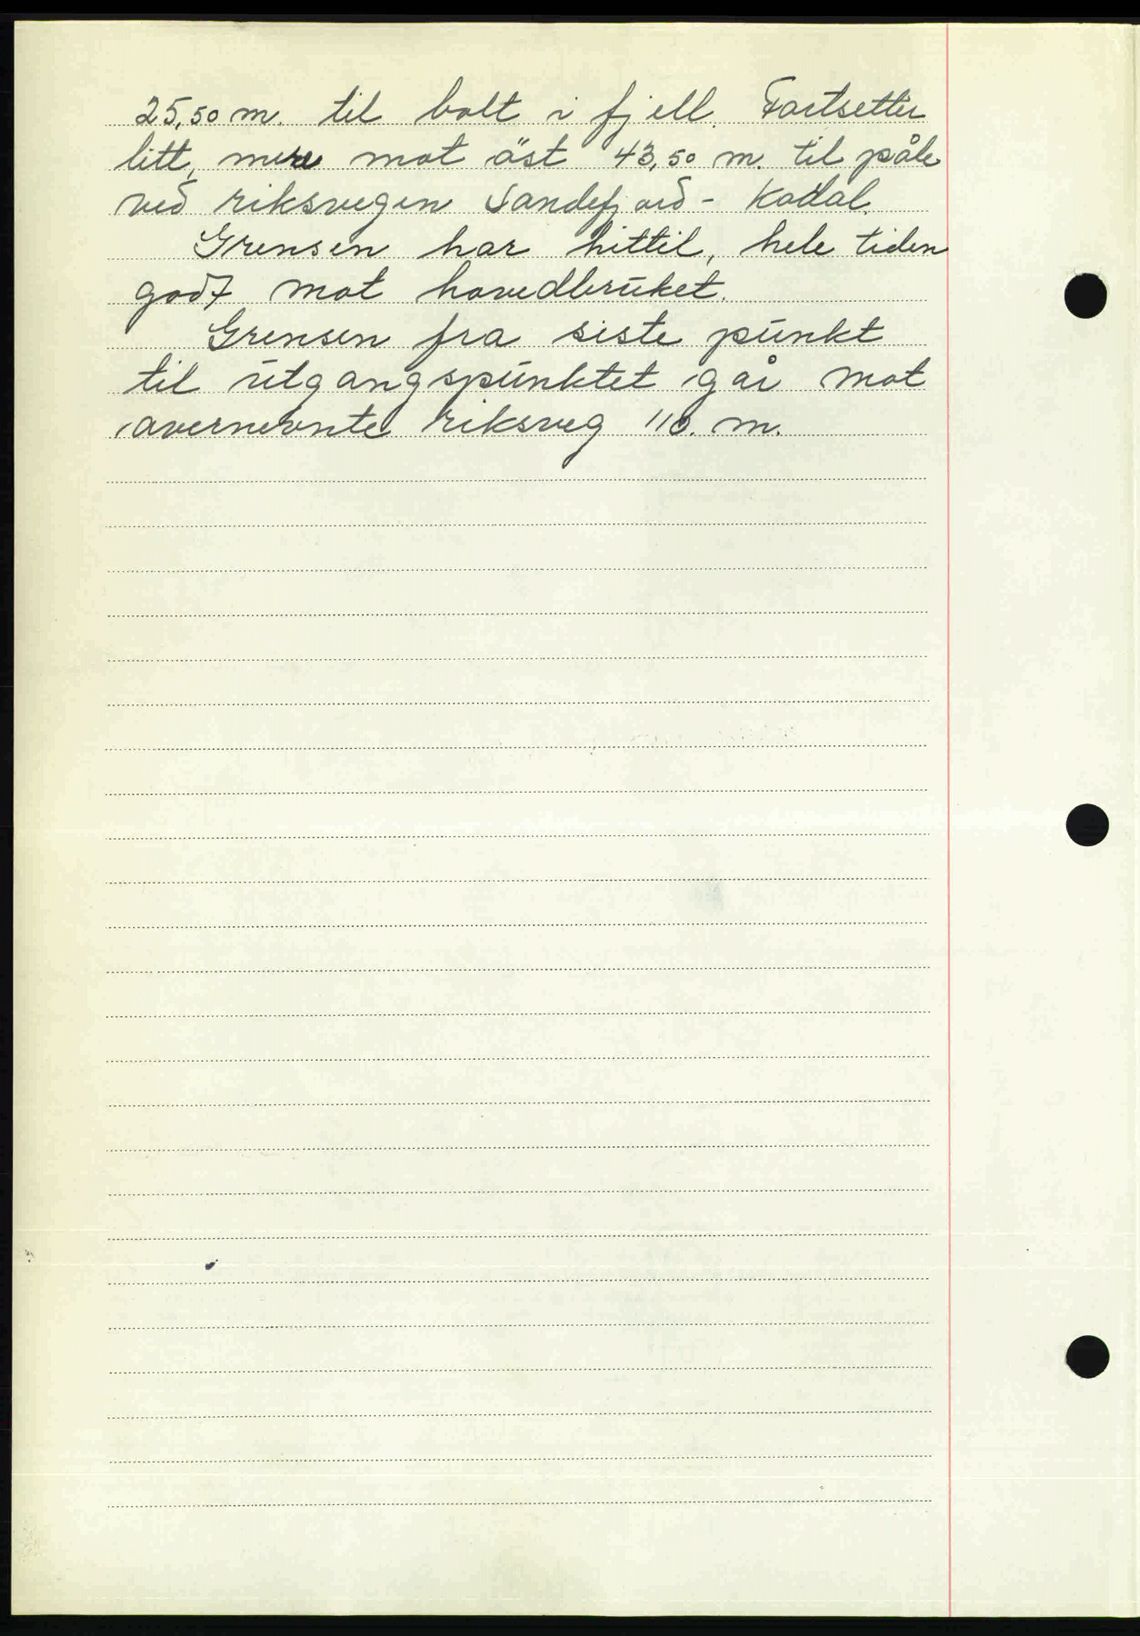 25,50 m. til bolt i fjell. Fortsetter
litt, mere mot öst 43,50 m. til påle
ved riksvegen Sandefjord - Kodal.
Grensen har hittil, hele tiden
godt mot hovedbruket.
Grensen fra siste punkt
til utgangspunktet går mot
overnevnte riksveg 110. m.